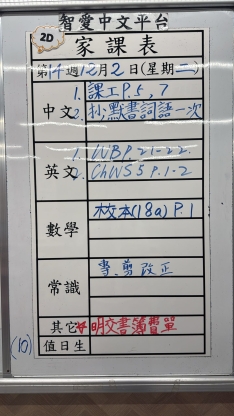 智愛中文平台
2D
家課表
第14週12月2日(星期二)
中文
1. 課工P.5,7
2. 抄默書詞語一次
英文
1. WB P.21-22
2. ChWS 5 P.1-2
數學
校本(18a) P.1
常識
書、剪改正
其它
明交書簿費單
(10)
值日生